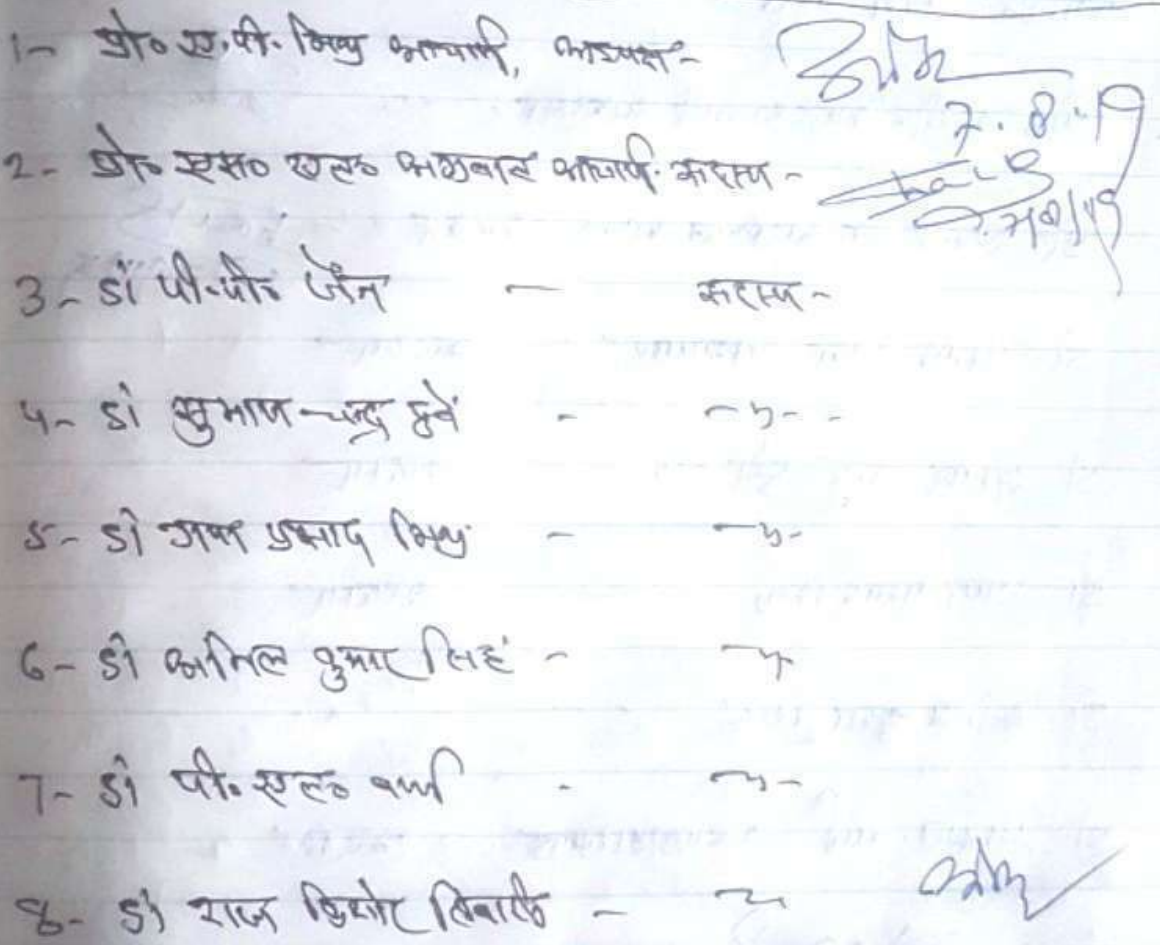 1- प्रो० ए.पी. मिश्र आचार्य, अध्यक्ष-
7.8.19
2- प्रो० एस० एल० अग्रवाल आचार्य. सदस्य -
7/8/19
3- डॉ पी.पी. जैन - सदस्य -
4- डॉ सुभाष चन्द्र दुबे - -"- -
5- डॉ प्रसाद मिश्र - -"-
6- डॉ अनिल कुमार सिहं - -"-
7- डॉ पी. एल० वर्मा - -"-
8- डॉ राज किशोर तिवारी - "